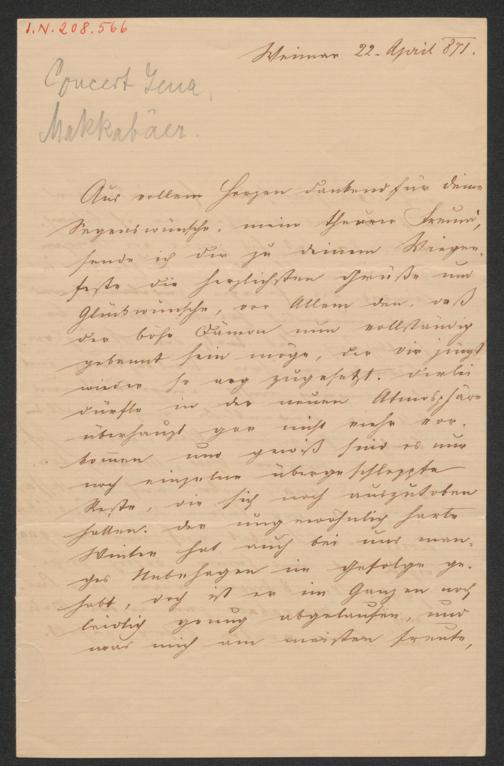 I.N. 208.566
Weimar 22. April 871.
Concert Jena,
Makkabäer.
Aus vollem Herzen dankend für deine
Segenswünsche, mein theurer Freund,
sende ich dir zu deinem Wiegen-
feste die herzlichsten Grüße und
Glückwünsche, vor Allem den, daß
der böse Dämon nun vollständig
gebannt sein möge, der dir jüngst
wieder so arg zugesetzt. Derlei
dürfte in der neuen Atmosphäre
überhaupt gar nicht mehr vor-
kommen und gewiß sind es nur
noch einzelne übergeschleppte
Reste, die sich noch auszutoben
hatten. Der ungewöhnlich harte
Winter hat auch bei uns man-
ges Unbehagen im Gefolge ge-
habt, doch ist er im Ganzen noch
leidlich genug abgelaufen, und
was mich am meisten freute,